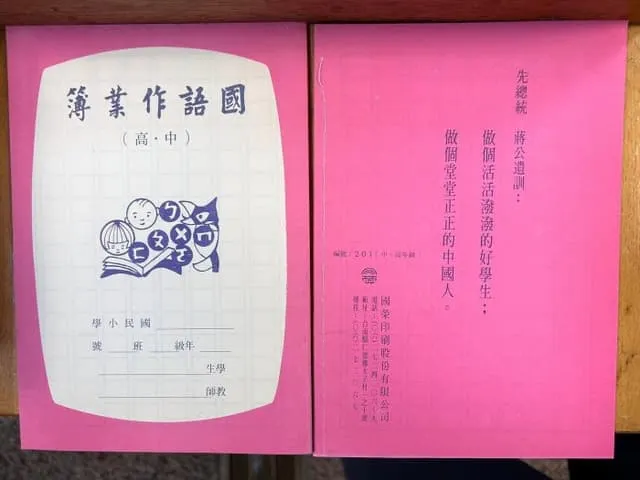 國語作業簿
（中・高）
國民小學
年級 班 號
學生
教師
先總統　蔣公遺訓：
做個活活潑潑的好學生；
做個堂堂正正的中國人。
編號：2011 中・高年級
國榮印刷股份有限公司
電話：
廠址：台南縣仁德鄉太子村